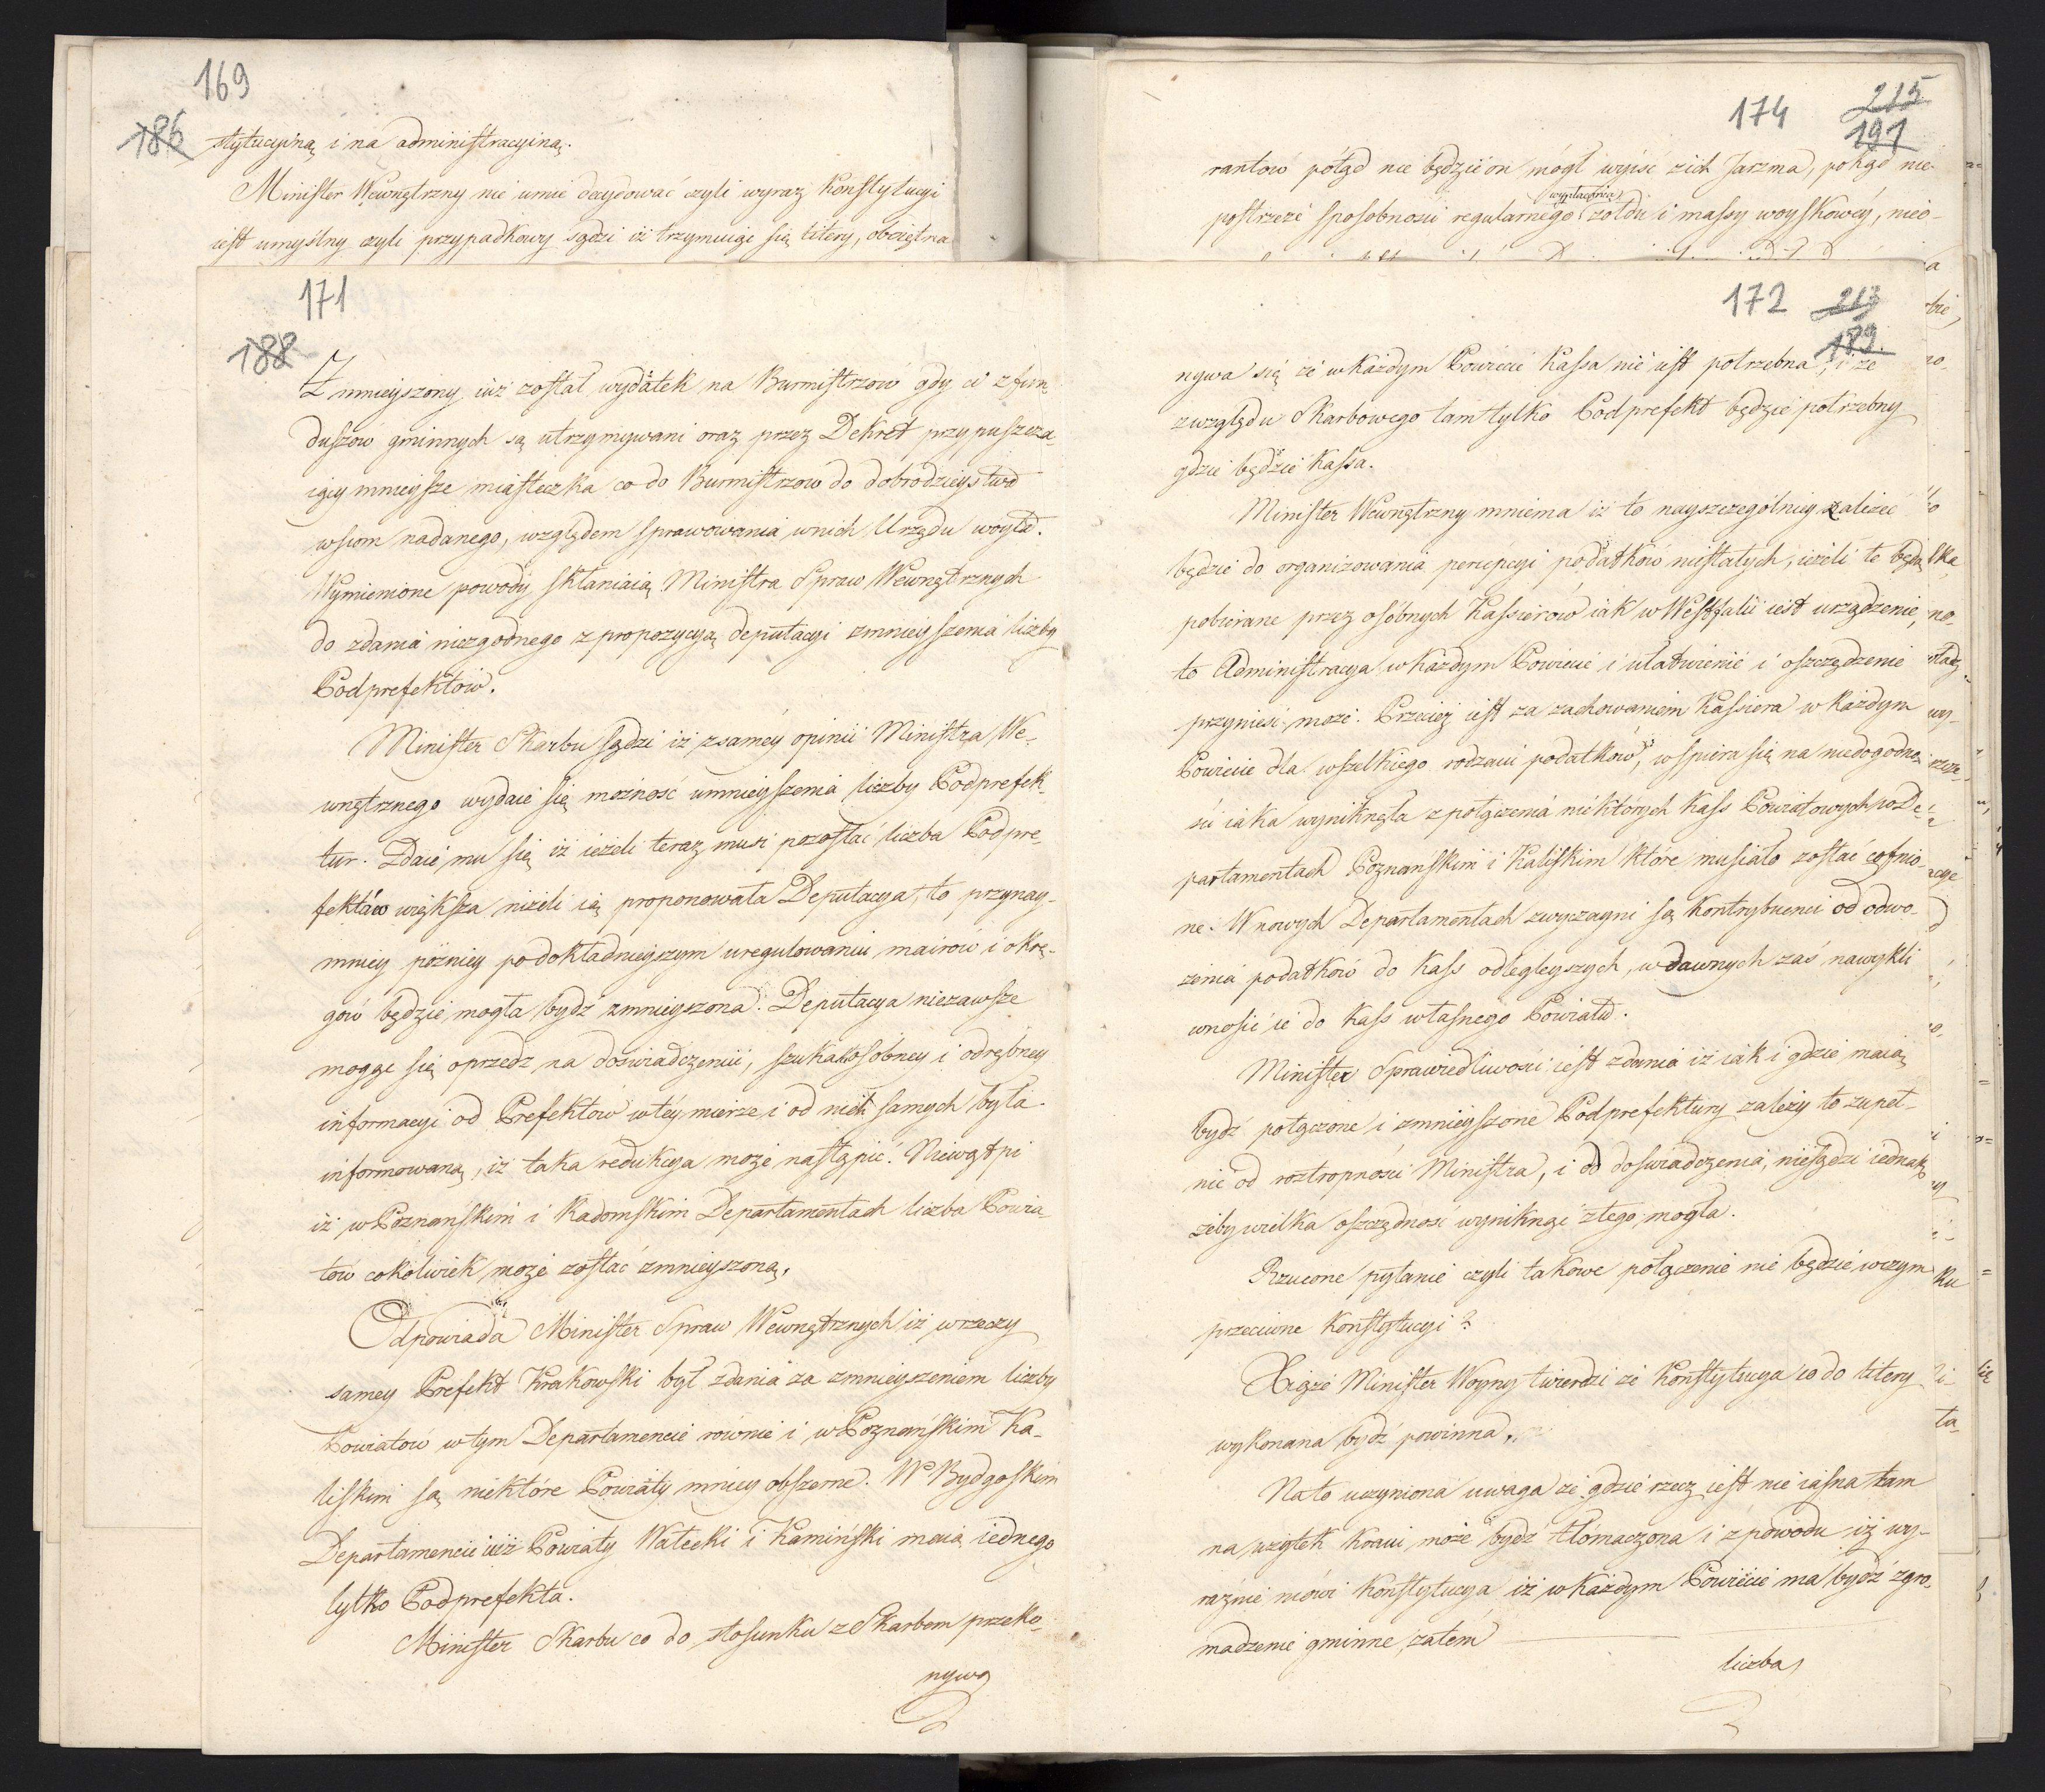 169
186
stytucyiną i na administracyiną.
Minister Wewnętrzny nie umie decydować czyli wyraz Konstytucyi
iest umyślny czyli przypadkowy sądzi iż trzymaiąc się litery, obciętna
174
215
191
rantów potąd nie będzie on mógł wyiść z ich Jarzma, pokąd nie
postrzeże sposobności regularnego wypłacania żołdu i massy woyskowéy, nieo-
171
188
Zmnieyszony iuż został wydatek na Burmistrzów gdy ci z fun-
duszów gminnych są utrzymywani oraz przez Dekret przypuszcza-
iący mnieysze miasteczka co do Burmistrzow do dobrodzieystwa
wsiom nadanego, względem sprawowania w nich Urzędu woyta.
Wymienione powody skłaniaią Ministra Spraw Wewnętrznych
do zdania niezgodnego z propozycyą deputacyi zmnieyszenia liczby
Podprefektów.
Minister Skarbu sądzi iż z saméy opinii Ministra We-
wnętrznego wydaie się możność umnieyszenia liczby Podprefek-
tur. Zdaie mu się iż ieżeli teraz musi pozostać liczba Podpre-
fektów większa niżeli ią proponowała Deputacya, to przynay-
mniey pózniey po dokładnieyszym uregulowaniu mairów i okrę-
gów będzie mogła bydź zmnieyszona. Deputacya niezawsze
mogąc się oprzedz na doświadczeniu, szukała osobney i odrębney
informacyi od Prefektów w téy mierze i od nich samych była
informowaną, iż taka redukcya może nastąpić. Niewątpi
iż w Poznańskim i Radomskim Departamentach liczba Powia-
tów cokolwiek może zostać zmnieyszoną.
Odpowiada Minister Spraw Wewnętrznych iż w rzeczy
samey Prefekt Krakowski był zdania za zmnieyszeniem liczby
Powiatow w tym Departamencie równie i w Poznańskim Ka-
liskim są niektóre Powiaty mniey obszerne. W Bydgoskim
Departamencie iuż Powiaty Wałecki i Kamiński maią iednego
tylko Podprefekta.
Minister Skarbu co do stosunku z Skarbem przeko-
nywa
172
213
189.
nywa się że w każdym Powiecie Kassa nie iest potrzebna, i że
z względu Skarbowego tam tylko Podprefekt będzie potrzebny
gdzie będzie Kassa.
Minister Wewnętrzny mniema iż to nayszczególniey zależeć
będzie do organizowania percepcyi podatków niestałych, ieżeli te będą
pobierane przez osóbnych Kassierów iak w Westfalii iest urządzenie,
to Administracya w każdym Powiecie i ułatwienie i oszczędzenie
przynieść może. Przecież iest za zachowaniem Kassiera w każdym
Powiecie dla wszelkiego rodzaiu podatków, wspiera się na niedogodno-
ści iaka wyniknęła z połączenia niektórych Kass Powiatowych w De-
partamentach Poznańskim i Kaliskim które musiało zostać cofnio-
ne. W nowych Departamentach zwyczayni są Kontrybuenci od odwo-
żenia podatków do Kass odlegleyszych, w dawnych zaś nawykli
wnosić ie do Kass własnego Powiatu.
Minister Sprawiedliwości iest zdania iż iak i gdzie maią
bydź połączone i zmnieyszone Podprefektury zależy to zupeł-
nie od roztropności Ministra, i od doświadczenia, niesądzi iednak
żeby wielka oszczędność wyniknąć z tego mogła.
Rzucone pytanie czyli takowe połączenie nie będzie w czym
przeciwne Konstytucyi?
Xiąże Minister Woyny twierdzi że Konstytucya co do litery
wykonana bydź powinna.
Na to uczyniona uwaga że gdzie rzecz iest nie iasna tam
na użytek kraiu może bydź tłomaczona i z powodu iż wy-
raźnie mówi Konstytucya iż w każdym Powiecie ma bydź zgro-
madzenie gminne, zatem
liczba